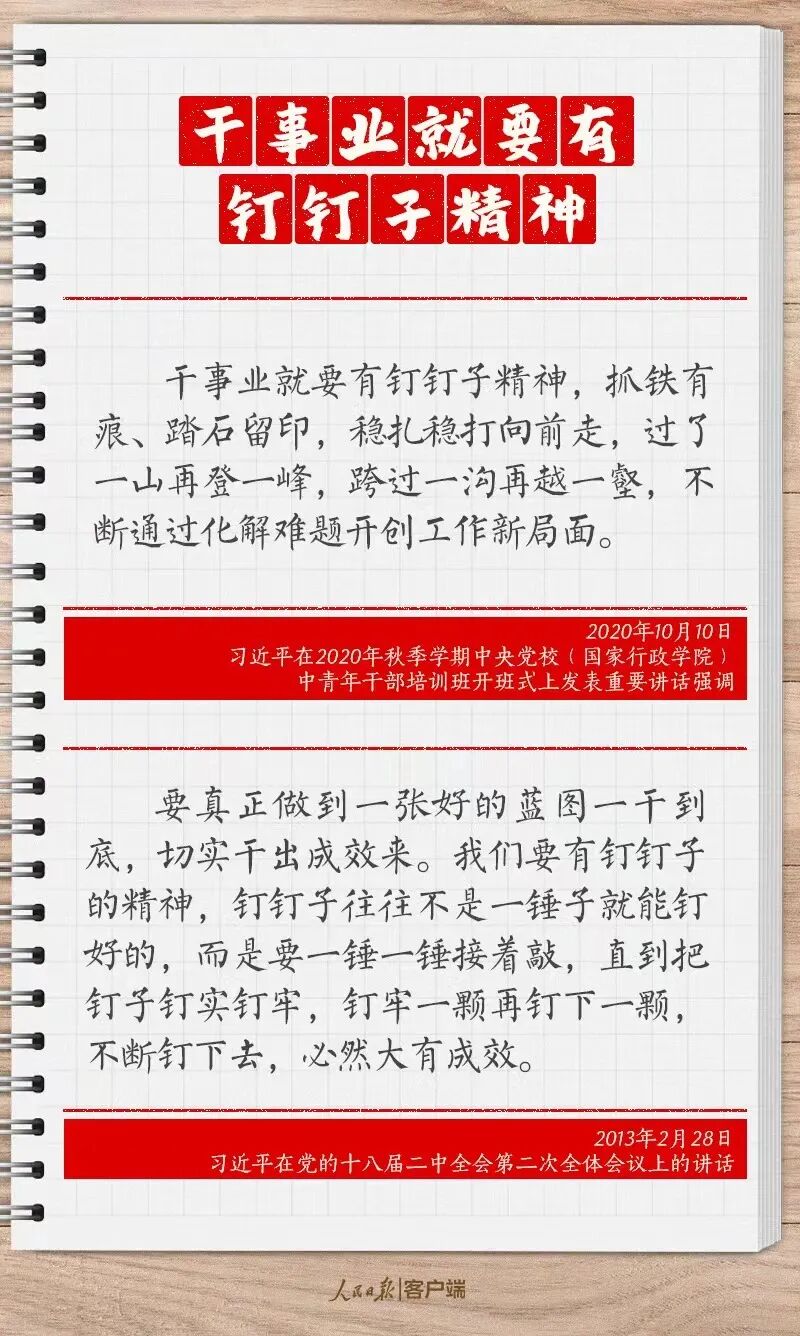 干事业就要有
钉钉子精神
干事业就要有钉钉子精神，抓铁有
痕、踏石留印，稳扎稳打向前走，过了
一山再登一峰，跨过一沟再越一壑，不
断通过化解难题开创工作新局面。
2020年10月10日
习近平在2020年秋季学期中央党校（国家行政学院）
中青年干部培训班开班式上发表重要讲话强调
要真正做到一张好的蓝图一干到
底，切实干出成效来。我们要有钉钉子
的精神，钉钉子往往不是一锤子就能钉
好的，而是要一锤一锤接着敲，直到把
钉子钉实钉牢，钉牢一颗再钉下一颗，
不断钉下去，必然大有成效。
2013年2月28日
习近平在党的十八届二中全会第二次全体会议上的讲话
人民日报|客户端